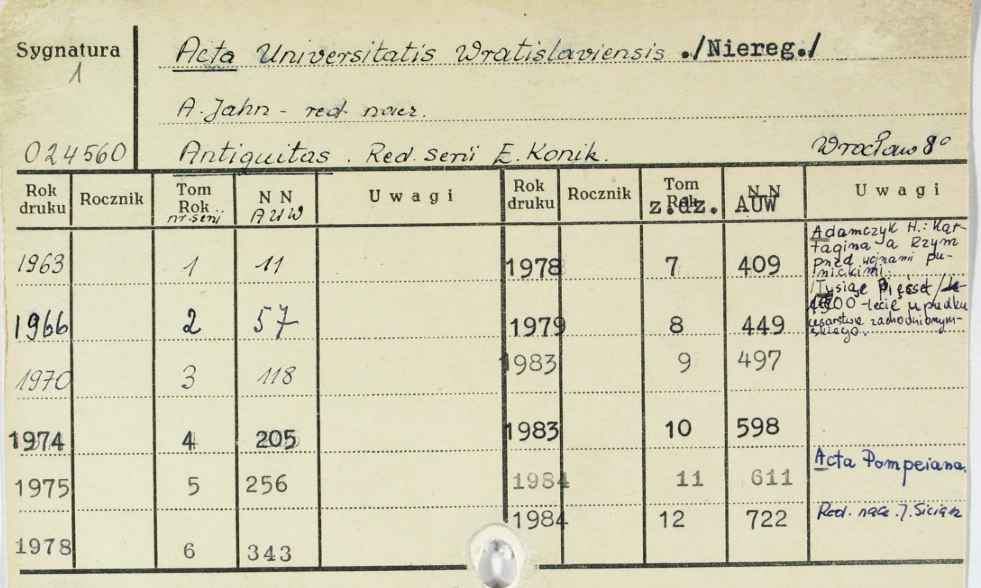 Sygnatura
1
Acta Universitatis Wratislaviensis ./Niereg./
A. Jahn - red. nacz.
024560
Antiquitas. Red. serii E. Konik.
Wrocław 8°
Rok druku Rocznik Tom Rok nr. serii N N AUW Uwagi Rok druku Rocznik Tom Rok z.dz. N N AUW Uwagi
1963 1 11 1978 7 409 Adamczyk H.: Kar-
tagina a Rzym
przed wojnami pu-
nickimi.
1966 2 57 1979 8 449 Tysiąc Pięćset
-lecie upadku
cesarstwa zachodniorzym-
skiego.
1970 3 118 1983 9 497
1974 4 205 1983 10 598
1975 5 256 1984 11 611 Acta Pompeiana.
1978 6 343 1984 12 722 Red. nacz. J.